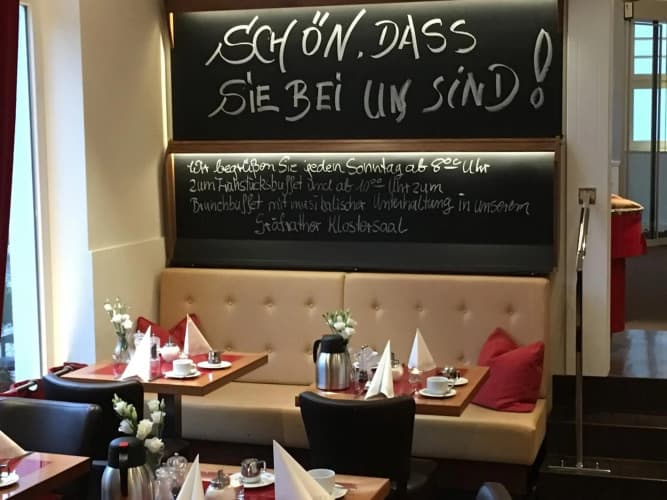 SCHÖN, DASS
SIE BEI UNS SIND!
Wir begrüßen Sie jeden Sonntag ab 8⁰⁰ Uhr
zum Frühstücksbuffet und ab 10⁰⁰ Uhr zum
Brunchbuffet mit musikalischer Unterhaltung in unserem
Gräfrather Klostersaal